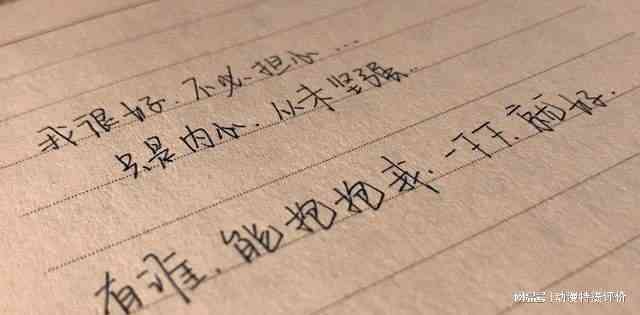 我很好.不必担心...
只是内心.从未坚强..
有谁.能抱抱我.一下下.就好.
动漫特漾评价